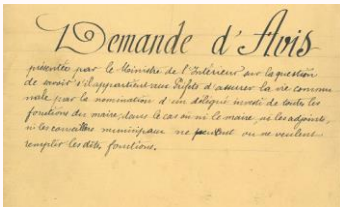 Demande d'Avis
présentée par le Ministre de l'Intérieur sur la question
de savoir s'il appartient aux Préfets d'assurer la vie commu
nale par la nomination d'un délégué investi de toutes les
fonctions du maire, dans le cas où ni le maire, ni les adjoints,
ni les conseillers municipaux ne peuvent ou ne veulent
remplir les dites fonctions.